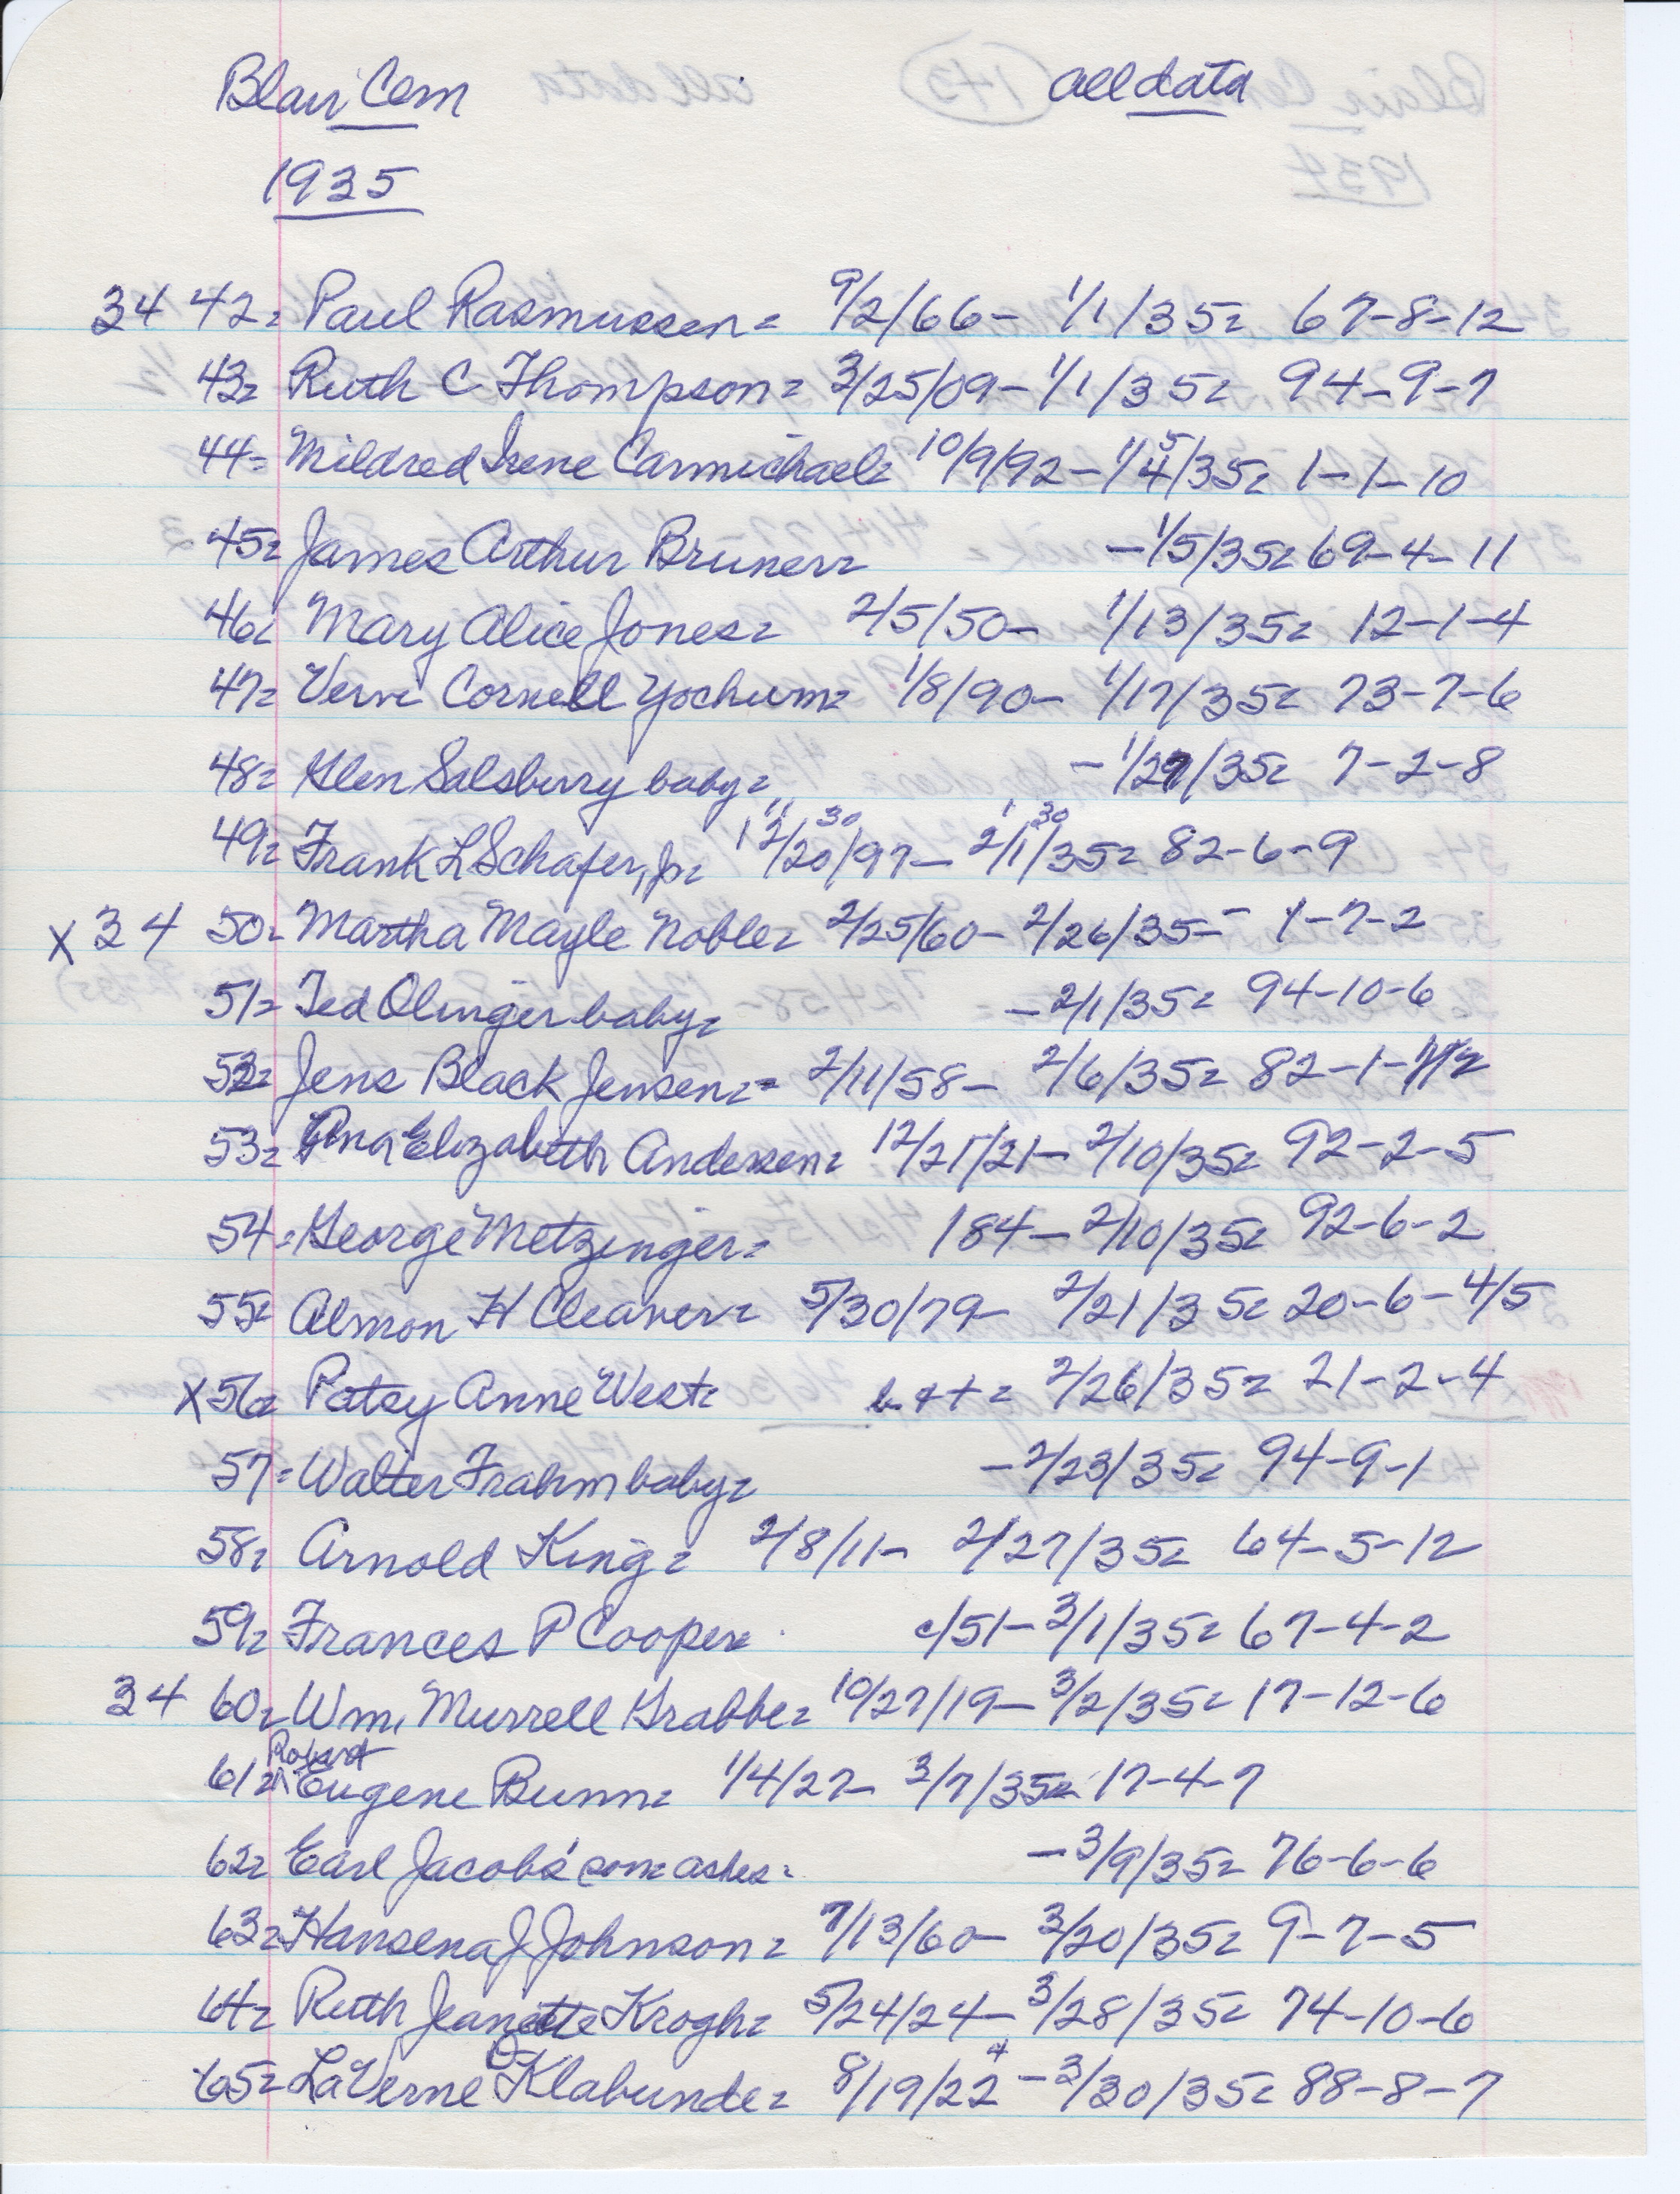 Blair Cem all data
1935
34 42= Paul Rasmussen= 9/2/66- 1/1/35= 67-8-12
43= Ruth C Thompson= 3/25/09- 1/1/35= 94-9-7
44= Mildred Irene Carmichael= 10/9/92- 1/4/35= 1-1-10
5
45= James Arthur Bruner= -1/5/35= 69-4-11
46= Mary Alice Jones= 2/5/50- 1/13/35= 12-1-4
47= Verne Cornell Yochum= 1/8/90- 1/17/35= 73-7-6
48= Glen Salsburry baby= -1/27/35= 7-2-8
11 30 1 30
49= Frank L Schafer, Jr= 12/20/97- 2/1/35= 82-6-9
X 34 50= Martha Mayle Noble= 2/25/60- 2/26/35= 1-7-2
51= Ted Olinger baby= -2/1/35= 94-10-6
52= Jens Black Jensen= 2/11/58- 2/6/35= 82-1-
53= Elizabeth Andersen= 12/21/21- 2/10/35= 92-2-5
54= George Metzinger= 184- 2/10/35= 92-6-2
55= Almon H Cleaver= 5/30/79- 2/21/35= 20-6-4/5
X56= Patsy Anne West= b & + = 2/26/35= 21-2-4
57= Walter Frahm baby= -2/23/35= 94-9-1
58= Arnold King= 2/8/11- 2/27/35= 64-5-12
59= Frances P Cooper= c/51- 3/1/35= 67-4-2
34 60= Wm. Murrell Grabbe= 10/27/19- 3/2/35= 17-12-6
Robert
61= ^ Eugene Bunn= 1/4/27- 3/7/35= 17-4-7
62= Earl Jacobs' son= ashes= -3/9/35= 76-6-6
63= Hansena J Johnson= 7/13/60- 3/20/35= 9-7-5
64= Ruth Jeanette Krogh= 5/24/24- 3/28/35= 74-10-6
D 4
65= LaVerne Klabunde= 8/19/22 -3/30/35= 88-8-7